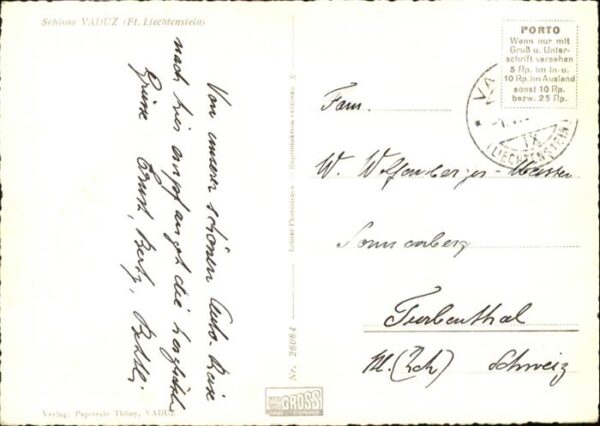 Schloss VADUZ (Ft. Liechtenstein)
Von unserer schönen Auto-Reise
nach hier empfangt die herzlichsten
Grüsse Ernst, Berty,
PORTO
Wenn nur mit
Gruß u. Unter-
schrift versehen
5 Rp. im In- u.
10 Rp. im Ausland
sonst 10 Rp.
bezw. 25 Rp.
VA
IX
(LIECHTENSTEIN)
Fam.
W. Wolfensberger-Messmer
Sonnenberg
Turbenthal
Kt. (Zch) Schweiz
Nr. 26064
Echter Photodruck - Reproduktion verboten.
GROSS
Verlag: Papeterie Thöny, VADUZ